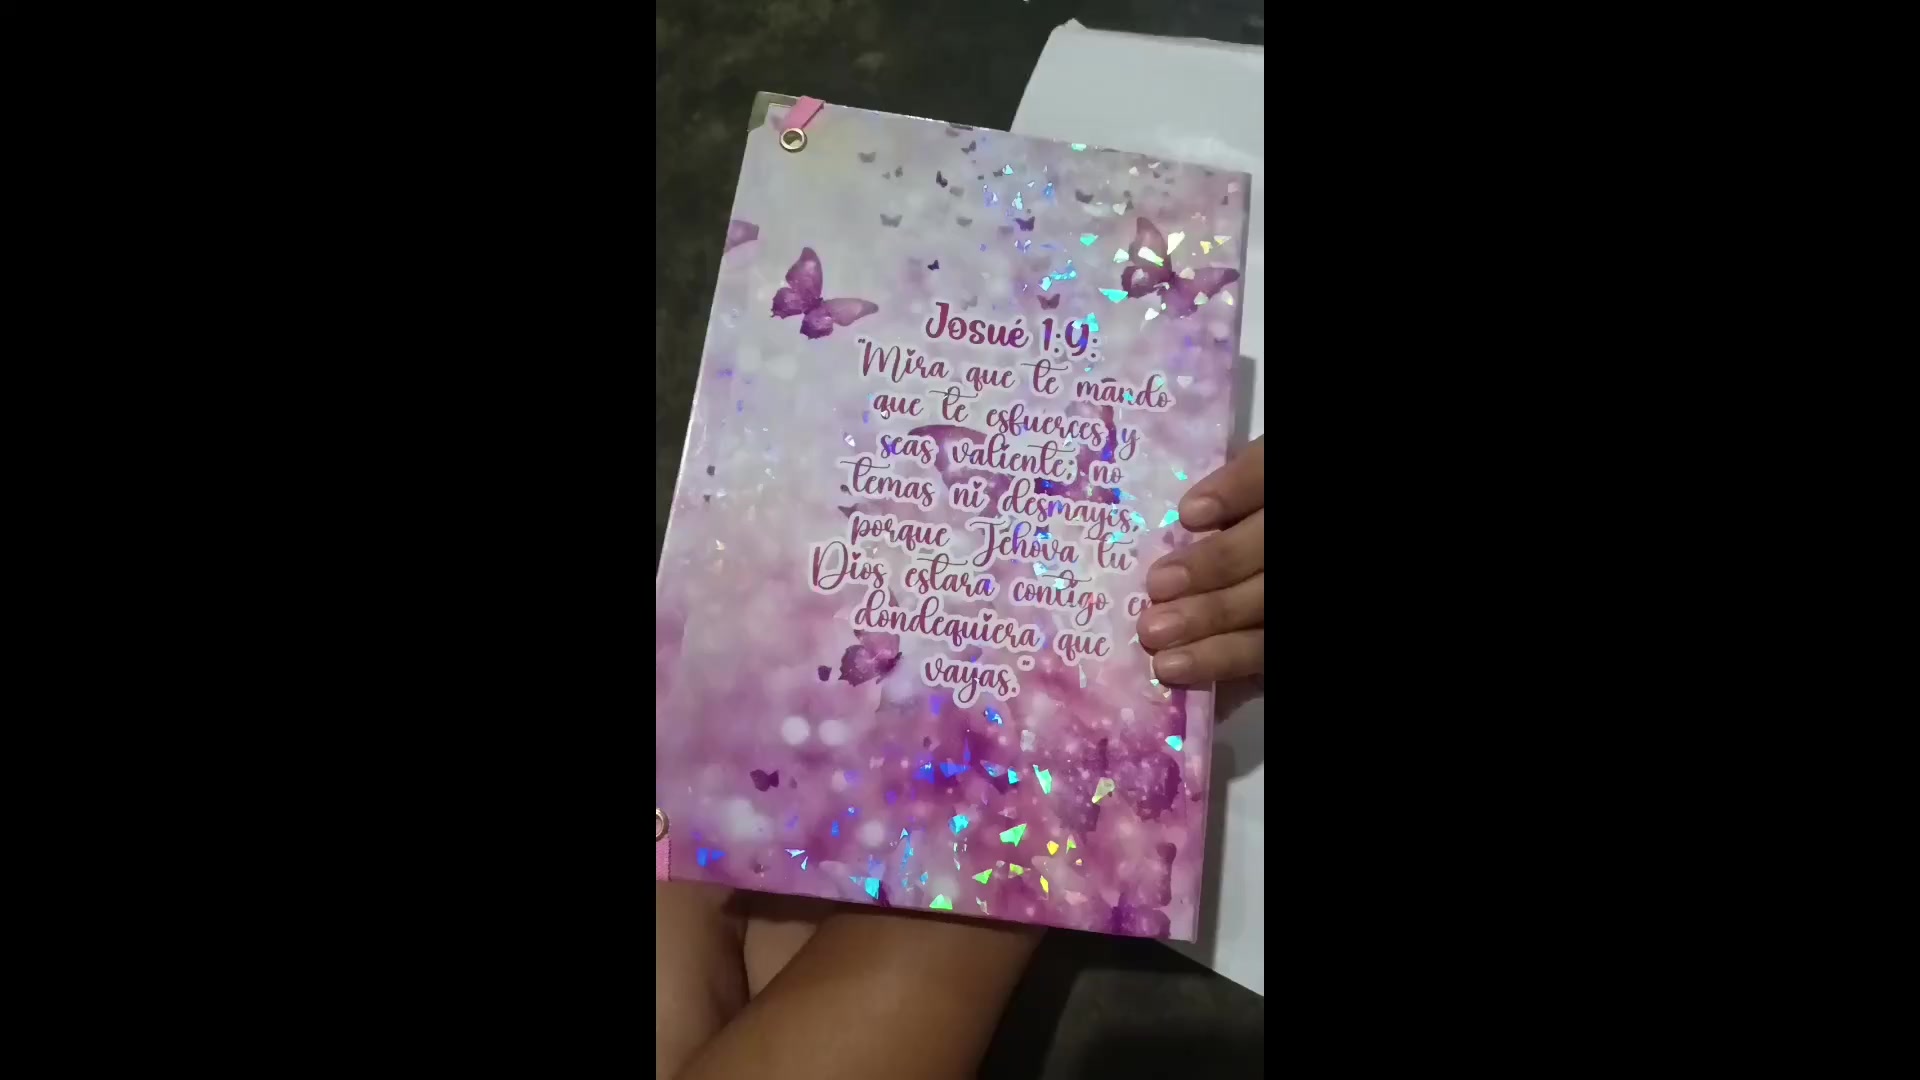 Josué 1:9:
"Mira que te mando
que te esfuerces y
seas valiente; no
temas ni desmayes,
porque Jehova tu
Dios estara contigo en
dondequiera que
vayas."